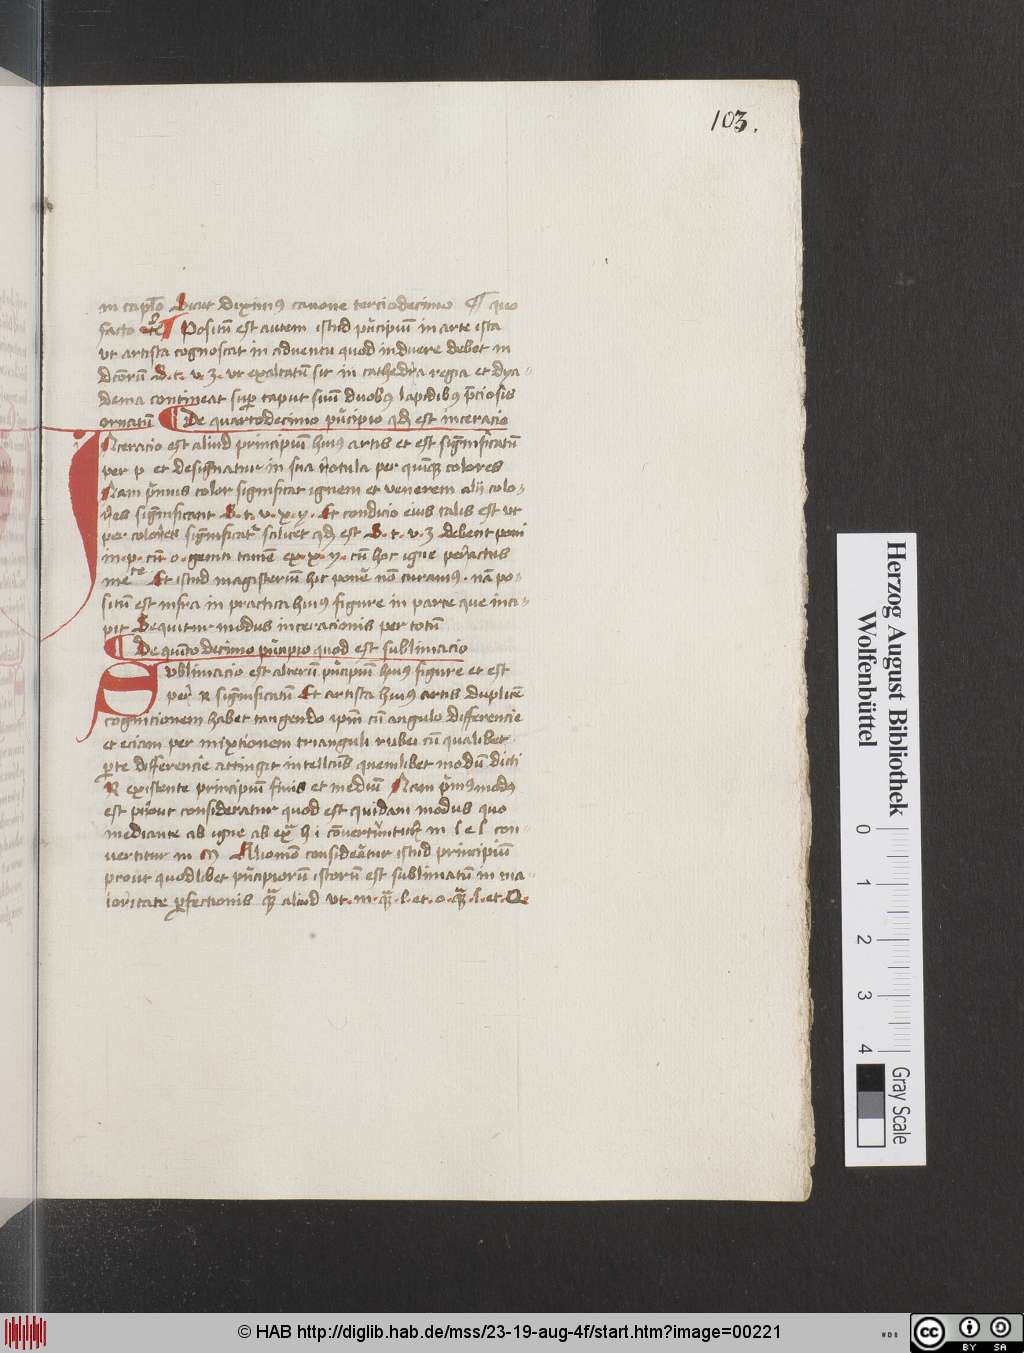 103.
in capło Sicut diximꝰ canone terciodecimo ¶ quo
facto
Positū est autem istud pͥncipiū in arte ista
vt artista cognoscat in adventu quod induere debet in
dcōrū S. t. v. z. vt exaltatū sit in cathedra regia et dya-
dema contineat supͬ caput suū duobꝰ lapidibꝰ p̄ciosis
ornatū ¶ De quartodecimo pͥncipio qd̄ est inceracio
INceracio est aliud principiū huiꝰ artis et est significatū
per p et designatur in sua rotula per quinqꝫ colores
Nam pͥmus color significat ignem et venerem alij colo-
res significant S. t. v. x. y. Et condicio eius talis est vt
per colores significatͬ scilicet qd̄ est S. t. v. z debent poni
in. p. cū o. tamē ex. x. y. cū hoc igne peractus
Et istud magisteriū hic ponē nō curamꝰ. nā po-
situ est infra in practica huiꝰ figure in parte que inci-
pit Sequitur modus inceracionis per totū
¶ De quīto decimo pͥncipio quod est sublimacio
SVblimacio est alterū pͥncipiū huiꝰ figure et est
per R significatū Et artista huiꝰ artis duplicē
cognicionem habet tangendo ipm̄ cū angulo differencie
et eciam per mixtionem trianguli rubei cū qualibet
ꝑte differencie attingit intellcūs quemlibet modū dicti
R existente principiū finis et mediū Nam pͥmꝰ modꝰ
est prout consideratur quod est quidam modus quo
mediante ab igne ab h i cōvertūtur in l e l con-
vertitur in m Aliomō consideātur istud principiū
prout quodlibet pͥncipiorū istorū est sublimatū in ma-
ioritate ꝑfectionis aliud vt. m. l. et. o. l. et. Q
Herzog August Bibliothek
Wolfenbüttel
0 1 2 3 4
Gray Scale
© HAB http://diglib.hab.de/mss/23-19-aug-4f/start.htm?image=00221
WDB
cc BY SA